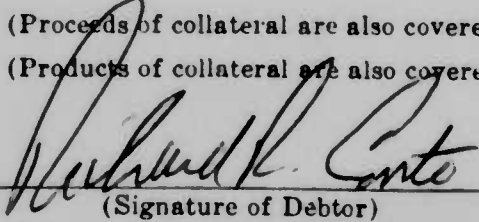 (Proceeds of collateral are also covere
(Products of collateral are also covere
Richard R. Conto
(Signature of Debtor)